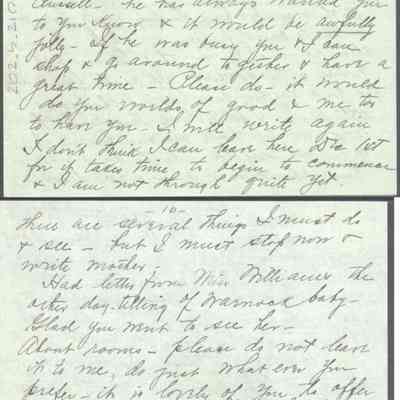 Russell - he has always wanted you
to you know & it would be awfully
jolly - If he was busy you & I can
shop & go around together & have a
great time - Please do - it would
do you worlds of good & me too
to have you - I will write again
I don't think I can leave here Dec 1st
for it takes time to begin to commence
& I am not through quite yet.
-10-
there are several things I must do
& see - but I must stop now &
write mother.
Had letter from Miss Williams the
other day telling of Warnock baby -
Glad you went to see her -
About rooms - please do not leave
it to me, do just what ever you
prefer - it is lovely of you to offer